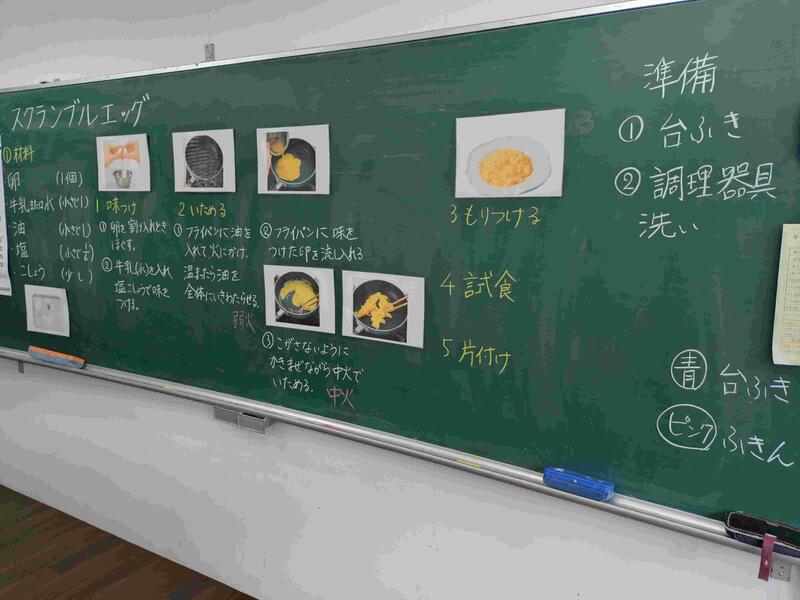 スクランブルエッグ
①材料
・卵 (1個)
・牛乳または水 (小さじ1)
・油 (小さじ1)
・塩
・こしょう (少し)
1 味つけ
① 卵を割り入れとき
ほぐす。
② 牛乳(水)を入れ
塩こしょうで味を
つける。
2 いためる
① フライパンに油を
入れて火にかけ、
温まったら油を
全体にいきわたらせる。
弱火
② フライパンに味を
つけた卵を流し入れる
③ こがさないように
かきまぜながら中火で
いためる。 中火
3 もりつける
4 試食
5 片付け
準備
① 台ふき
② 調理器具
洗い
青 台ふき
ピンク ふきん